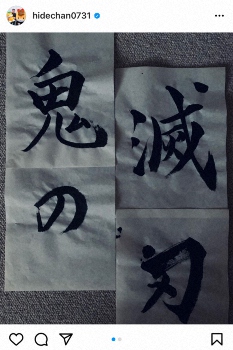 hidechan0731
鬼の
滅刃